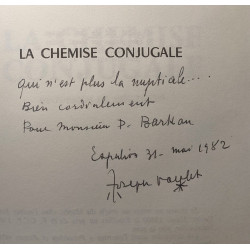 LA CHEMISE CONJUGALE
qui n'est plus la nuptiale....
Bien cordialement
Pour Monsieur P. Barkan
31 - mai 1982
Joseph